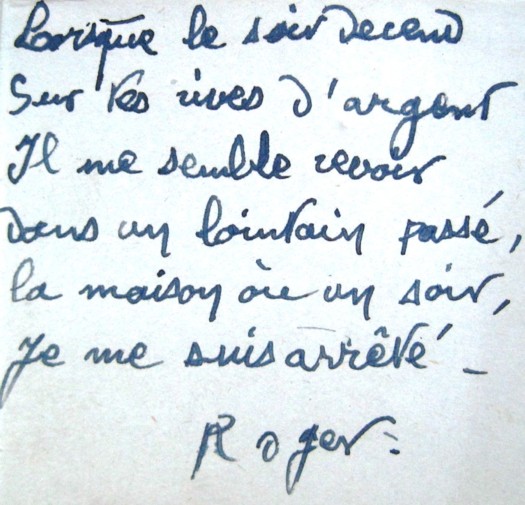 Lorsque le soir decend
Sur tes rives d'argent
Il me semble revoir
dans un lointain passé,
la maison où un soir,
Je me suis arrêté _
Roger.